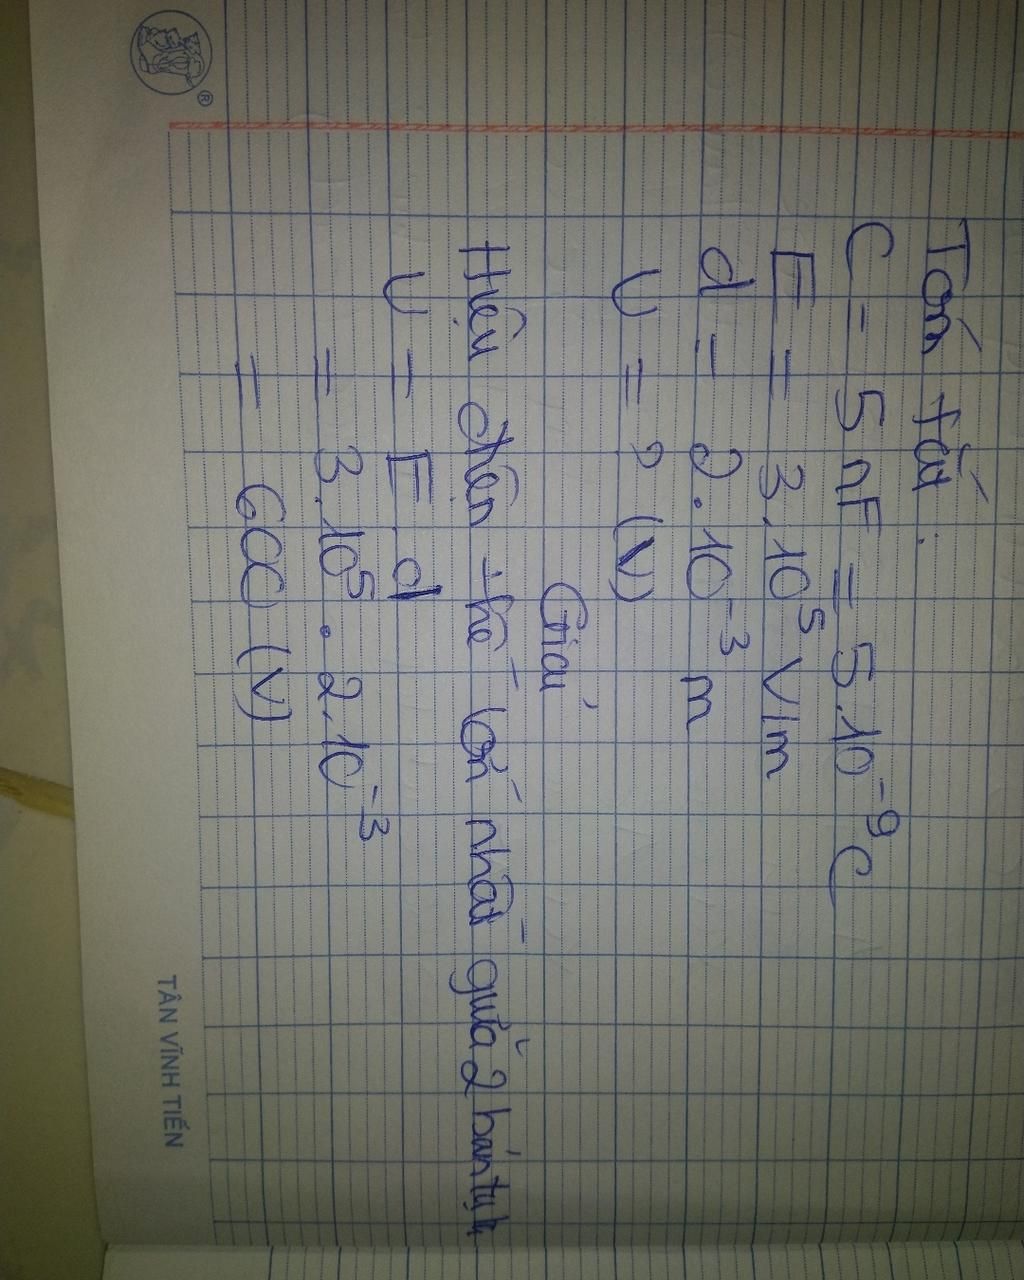 Tóm tắt:
C = 5 nF = 5.10⁻⁹ C
E = 3.10⁵ V/m
d = 2.10⁻³ m
U = ? (V)
Giải
Hiệu điện thế lớn nhất giữa 2 bản tụ là
U = E.d
= 3.10⁵ . 2.10⁻³
= 600 (V)
®
TÂN VĨNH TIẾN